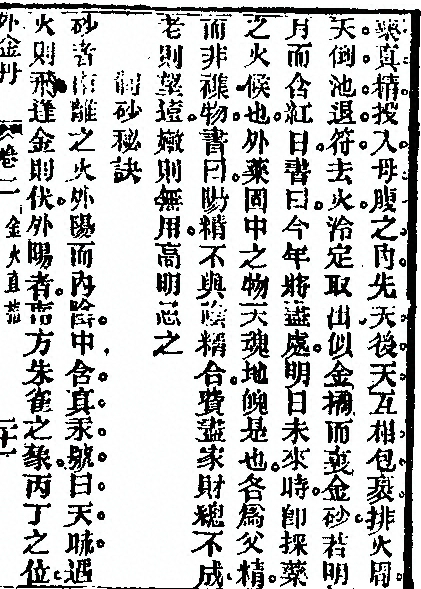 藥真精投入母腹之內先天後天互相包裹排火周
天倒池退符去火冷定取出似金橘而裹金砂若明
月而含紅日書曰今年將盡處明日未來時即採藥
之火候也外藥固中之物天魂地魄是也各爲父精
而非雜物書曰陽精不與陰精合費盡家財總不成
老則望遠嫩則無用高明忌之
砂秘訣
砂者南離之火外陽而內陰中含真汞號曰天硫遇
火則飛逢金則伏外陽者南方朱雀之象丙丁之位
外金丹 卷二 金火直指 二十一